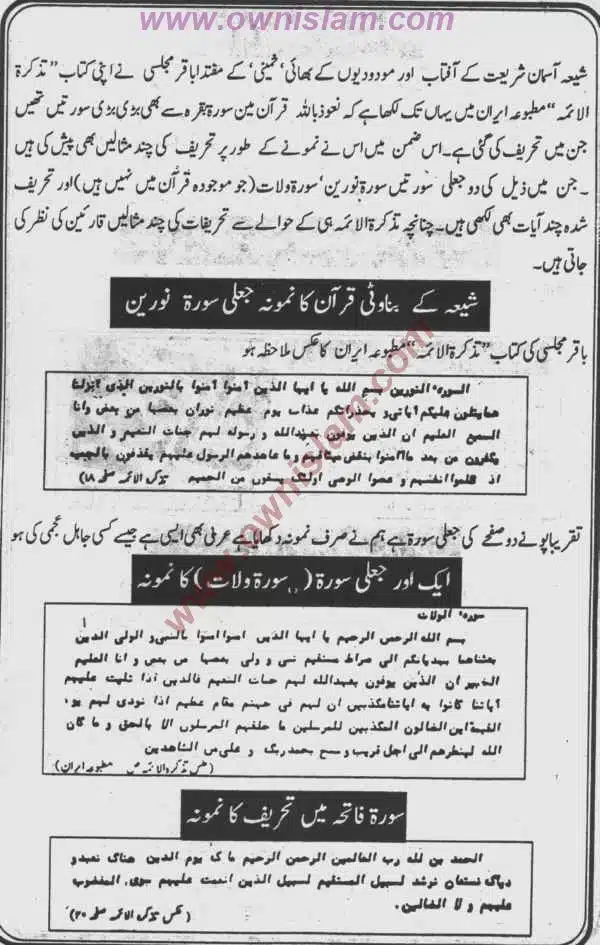 www.ownislam.com
شیعہ آسمان شریعت کے آفتاب اور مودودیوں کے بھائی ’خمینی‘ کے مقتدا باقر مجلسی نے اپنی کتاب ”تذکرۃ
الائمہ“ مطبوعہ ایران میں یہاں تک لکھا ہے کہ نعوذ باللہ قرآن مین سورۃ بقرہ سے بھی بڑی بڑی سورتیں تھیں
جن میں تحریف کی گئی ہے۔ اس ضمن میں اس نے نمونے کے طور پر تحریف کی چند مثالیں بھی پیش کی ہیں
۔ جن میں ذیل کی دو جعلی سورتیں سورۃ نورین‘ سورۃ ولات (جو موجودہ قرآن میں نہیں ہیں) اور تحریف
شدہ چند آیات بھی لکھی ہیں۔ چنانچہ تذکرۃ الائمہ ہی کے حوالے سے تحریفات کی چند مثالیں قارئین کی نظر کی
جاتی ہیں۔
شیعہ کے بناوٹی قرآن کا نمونہ جعلی سورۃ نورین
باقر مجلسی کی کتاب ”تذکرۃ الائمہ“ مطبوعہ ایران کا عکس ملاحظہ ہو
السورۃ النورین بسم الله يا ايها الذين آمنوا آمنوا بالنورين الذى انزلنا
عليكم آياتى و عذاب يوم عظيم نوران بعضها من بعض وانا
السميع العليم ان الذين يوفون بعهدالله و رسوله لهم جنات النعيم و الذين
من بعد ما آمنوا بنقض ميثاقهم و ما عاهدهم الرسول عليهم يقذفون
اذ ظلموا انفسهم و عصوا الوصى اولئك يسقون من الحميم تذکرۃ الائمہ صفحہ ۱۸)
تقریبا پونے دو صفحے کی جعلی سورۃ ہے ہم نے صرف نمونہ دکھایا ہے عربی بھی ایسی ہے جیسے کسی جاہل عجمی کی ہو
ایک اور جعلی سورۃ (,, سورۃ ولات) کا نمونہ
سورہ الولات
بسم الله الرحمن الرحيم يا ايها الذين امنوا امنوا بالنبى و الولى الذين
بعثناهما يهديانكم الى صراط مستقيم نبى و ولى بعضها من بعض و انا العليم
الخبير ان الذين يوفون بعهدالله لهم جنات النعيم فالذين اذا تليت عليهم
آياتنا كانوا به اياتنا مكذبين ان لهم فى جهنم مقام عظيم اذا نودى لهم يوم
القيمة اين الضالون المكذبين للمرسلين ما خلفهم المرسلون الا بالحق و ما كان
الله لينظرهم الى اجل قريب و سبح بحمد ربك و على من الشاهدين
(عکس تذکرۃ الائمہ ص مطبوعہ ایران)
سورۃ فاتحہ میں تحریف کا نمونہ
الحمد لله رب العالمين الرحمن الرحيم يوم الدين هياك نعبد و
وياك نستعان نرشد لسبيل المستقيم لسبيل الذين انعمت عليهم سوى المغضوب
عليهم و لا الضالين۔ (عکس تذکرۃ الائمہ صفحہ ۲۰)
www.ownislam.com